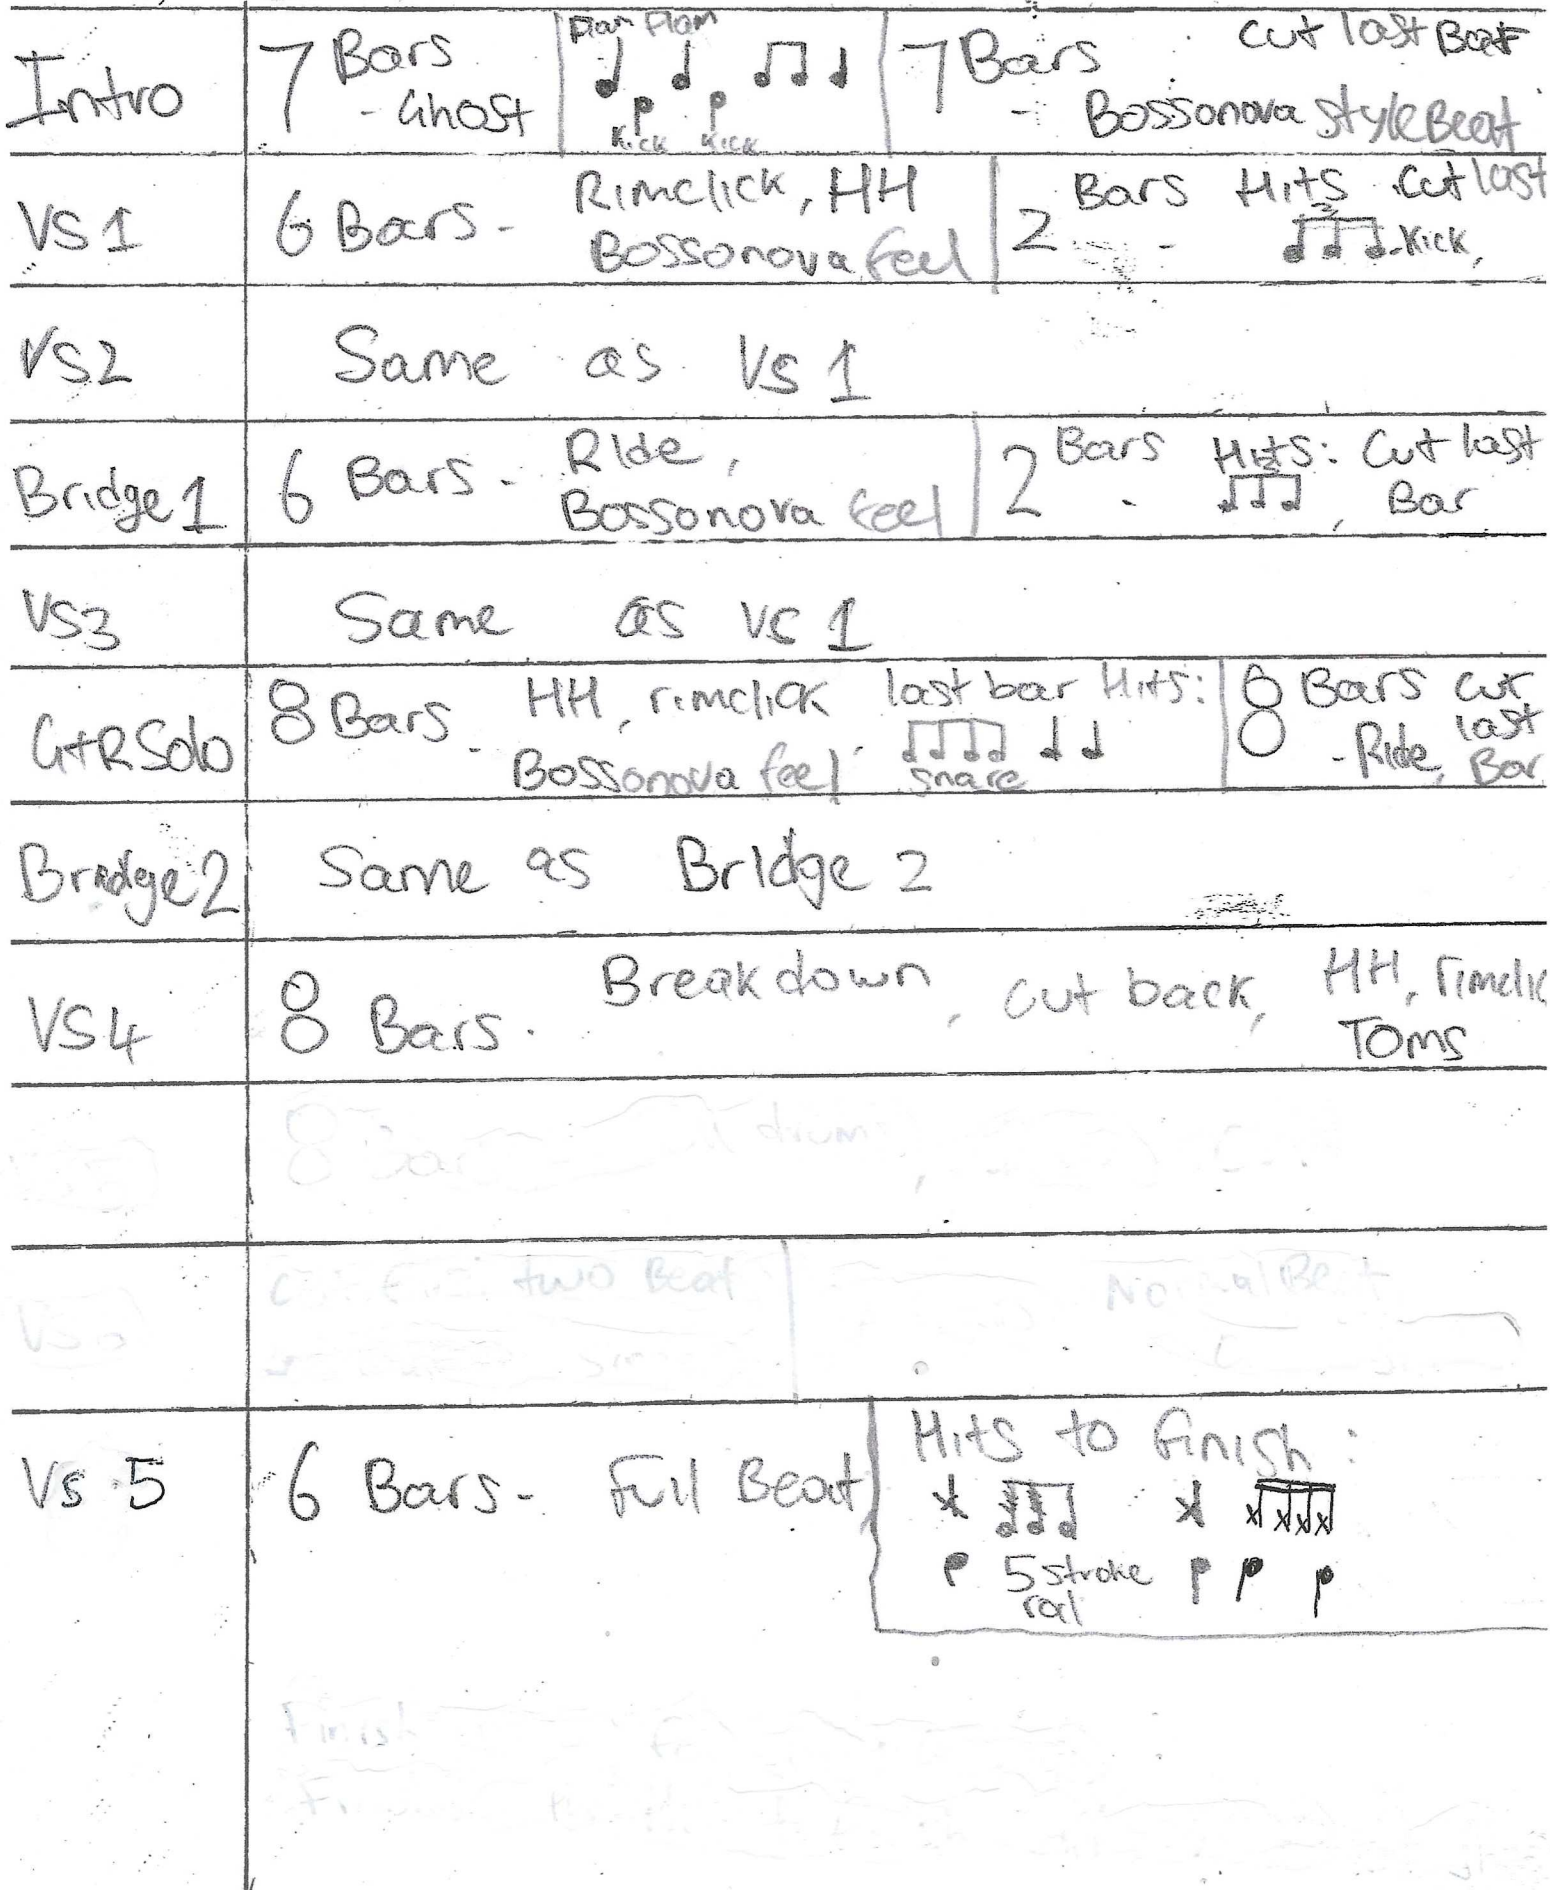 Intro
7 Bars
- Ghost
Flam Flam
Kick Kick
7 Bars
cut last Beat
- Bossonova style Beat
VS 1
6 Bars -
Rimclick, HH
Bossonova feel
2 Bars - Hits
3
Kick,
Cut last
VS2
Same as VS 1
Bridge 1
6 Bars -
Ride,
Bossonova feel
2 Bars -
Hits: Cut last
3
, Bar
VS3
Same as VS 1
GtR Solo
8 Bars -
HH, rimclick
Bossonova feel
last bar Hits:
snare
8 Bars cut
last
- Ride, Bar
Bridge 2
Same as Bridge 2
VS4
8 Bars -
Breakdown, cut back, HH, rimclic
Toms
8 Bar
drum
two Beat
Vs 5
6 Bars - Full Beat
Hits to finish:
5 stroke
roll
Finish